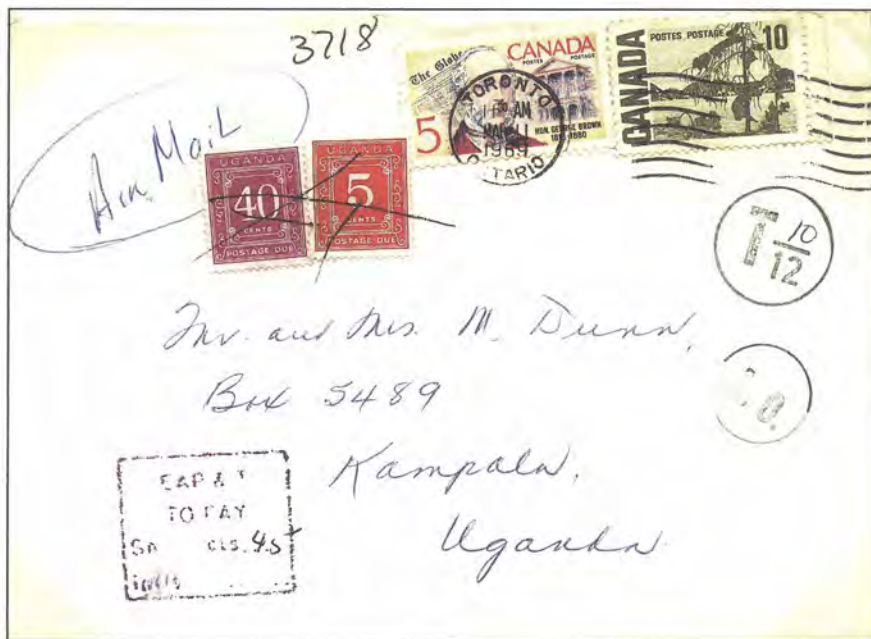 3718
Air Mail
The Globe
CANADA
POSTES POSTAGE
5
HON. GEORGE BROWN
1880
TORONTO
AM
1969
ONTARIO
CANADA
POSTES POSTAGE
10
UGANDA
40
CENTS
POSTAGE DUE
UGANDA
5
CENTS
POSTAGE DUE
T 10
12
Mr. and Mrs. M. Dunn,
Box 5489
Kampala,
Uganda
EAP & T
TO PAY
CTS. 45